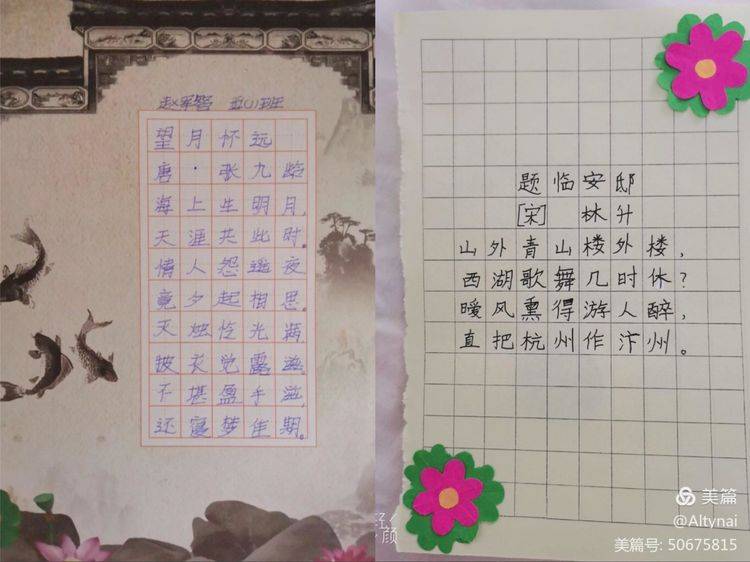 五(1)班
望月怀远
唐·张九龄
海上生明月,
天涯共此时。
情人怨遥夜
竟夕起相思。
灭烛怜光满,
披衣觉露滋
不堪盈手
还寝梦佳期。
题临安邸
[宋] 林升
山外青山楼外楼,
西湖歌舞几时休?
暖风熏得游人醉,
直把杭州作汴州。
美篇
@Altynai
美篇号: 50675815